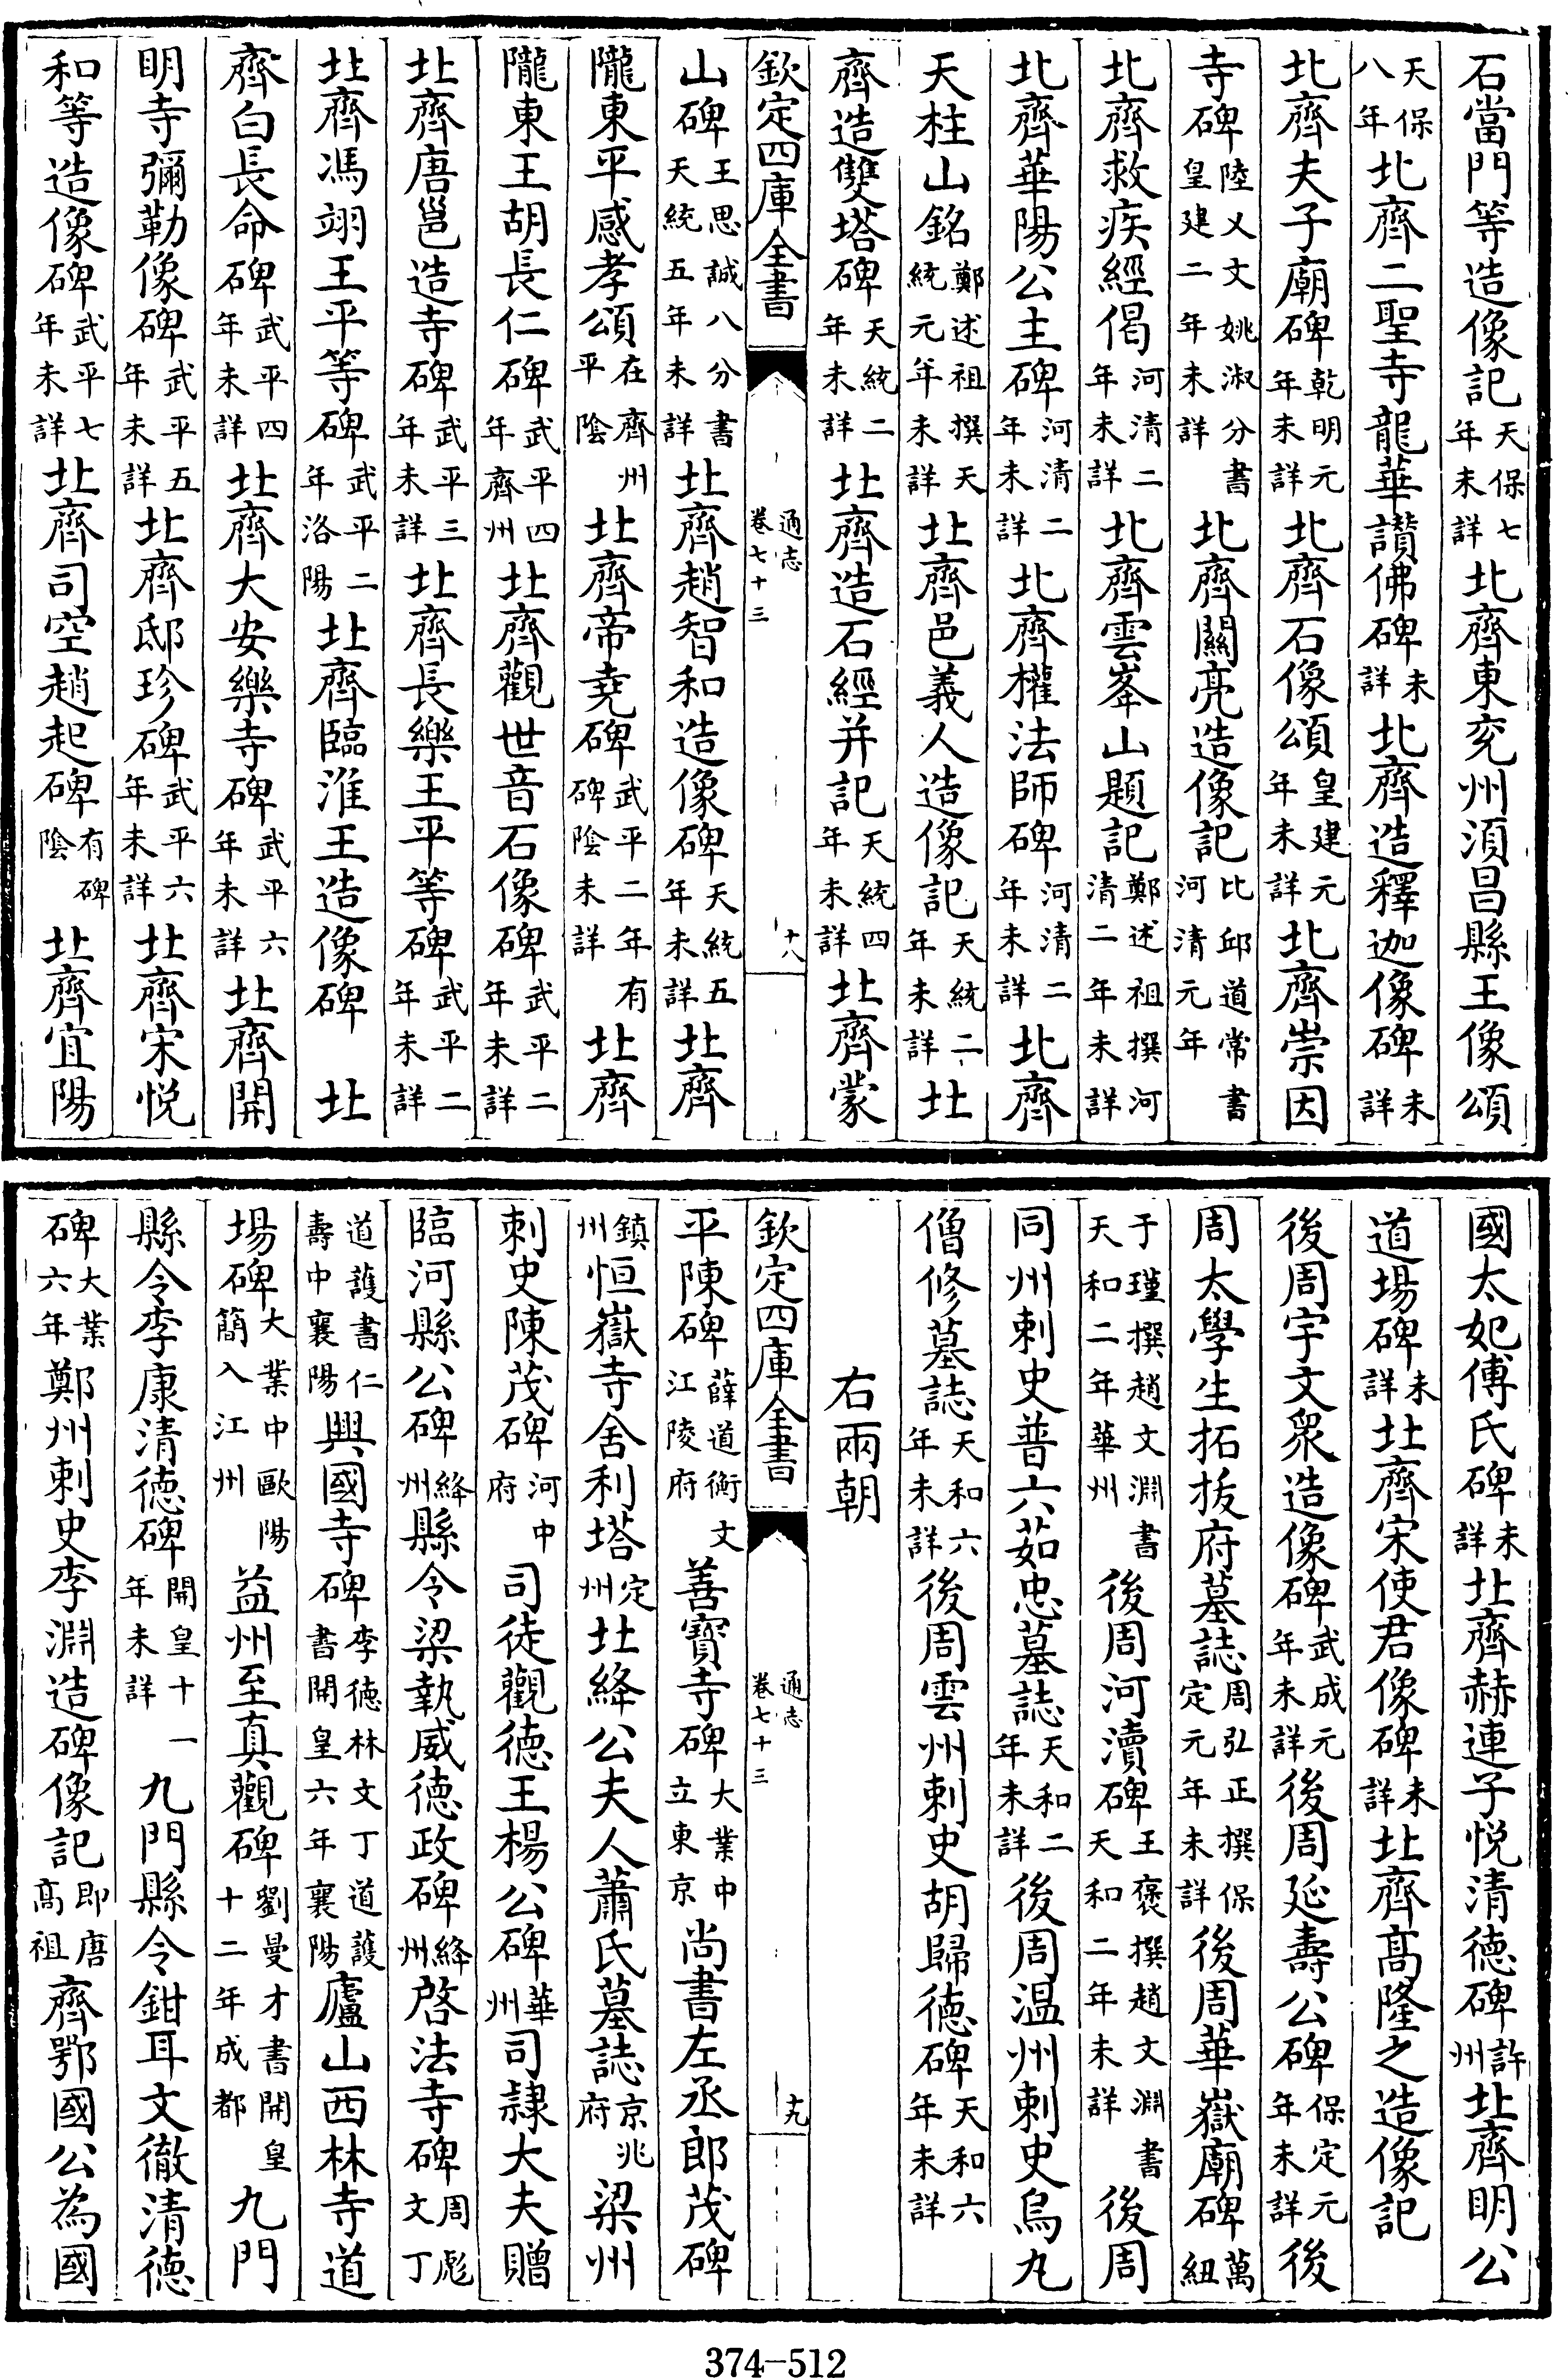 石當門等造像記天保七年未詳北齊東兖州須昌縣王像頌
天保八年北齊二聖寺龍華讃佛碑未詳北齊造釋迦像碑未詳
北齊夫子廟碑乾明元年未詳北齊石像頌皇建元年未詳北齊崇因
寺碑陸乂文姚淑分書皇建二年未詳北齊關亮造像記比邱道常書河清元年
北齊救疾經偈河清二年未詳北齊雲峯山題記鄭述祖撰河清二年未詳
北齊華陽公主碑河清二年未詳北齊權法師碑河清二年未詳北齊
天柱山銘鄭述祖撰天統元年未詳北齊邑義人造像記天統二年未詳北
齊造雙塔碑天統二年未詳北齊造石經并記天統四年未詳北齊蒙
欽定四庫全書 通志 卷七十三 十八
山碑王思誠八分書天統五年未詳北齊趙智和造像碑天統五年未詳北齊
隴東平感孝頌在齊州平陰北齊帝堯碑武平二年有碑陰未詳北齊
隴東王胡長仁碑武平四年齊州北齊觀世音石像碑武平二年未詳
北齊唐邕造寺碑武平三年未詳北齊長樂王平等碑武平二年未詳
北齊馮翊王平等碑武平二年洛陽北齊臨淮王造像碑 北
齊白長命碑武平四年未詳北齊大安樂寺碑武平六年未詳北齊開
明寺彌勒像碑武平五年未詳北齊邸珍碑武平六年未詳北齊宋悦
和等造像碑武平七年未詳北齊司空趙起碑有碑陰北齊宜陽
國太妃傅氏碑未詳北齊赫連子悦清德碑許州北齊明公
道場碑未詳北齊宋使君像碑未詳北齊髙隆之造像記
後周宇文衆造像碑武成元年未詳後周延壽公碑保定元年未詳後
周太學生拓抜府墓誌周弘正撰保定元年未詳後周華嶽廟碑萬紐
于瑾撰趙文淵書天和二年華州後周河瀆碑王褒撰趙文淵書天和二年未詳後周
同州刺史普六茹忠墓誌天和二年未詳後周温州刺史烏丸
僧修墓誌天和六年未詳後周雲州刺史胡歸德碑天和六年未詳
右兩朝
欽定四庫全書 通志 卷七十三 十九
平陳碑薛道衡文江陵府善寶寺碑大業中立東京尚書左丞郎茂碑
鎮州恒嶽寺舍利塔定州北絳公夫人蕭氏墓誌京兆府梁州
刺史陳茂碑河中府司徒觀德王楊公碑華州司隷大夫贈
臨河縣公碑絳州縣令梁執威德政碑絳州啓法寺碑周彪文丁
道護書仁壽中襄陽興國寺碑李德林文丁道護書開皇六年襄陽廬山西林寺道
場碑大業中歐陽簡入江州益州至真觀碑劉曼才書開皇十二年成都九門
縣令李康清德碑開皇十一年未詳九門縣令鉗耳文徹清德
碑大業六年鄭州刺史李淵造碑像記即唐髙祖齊鄂國公為國
374-512